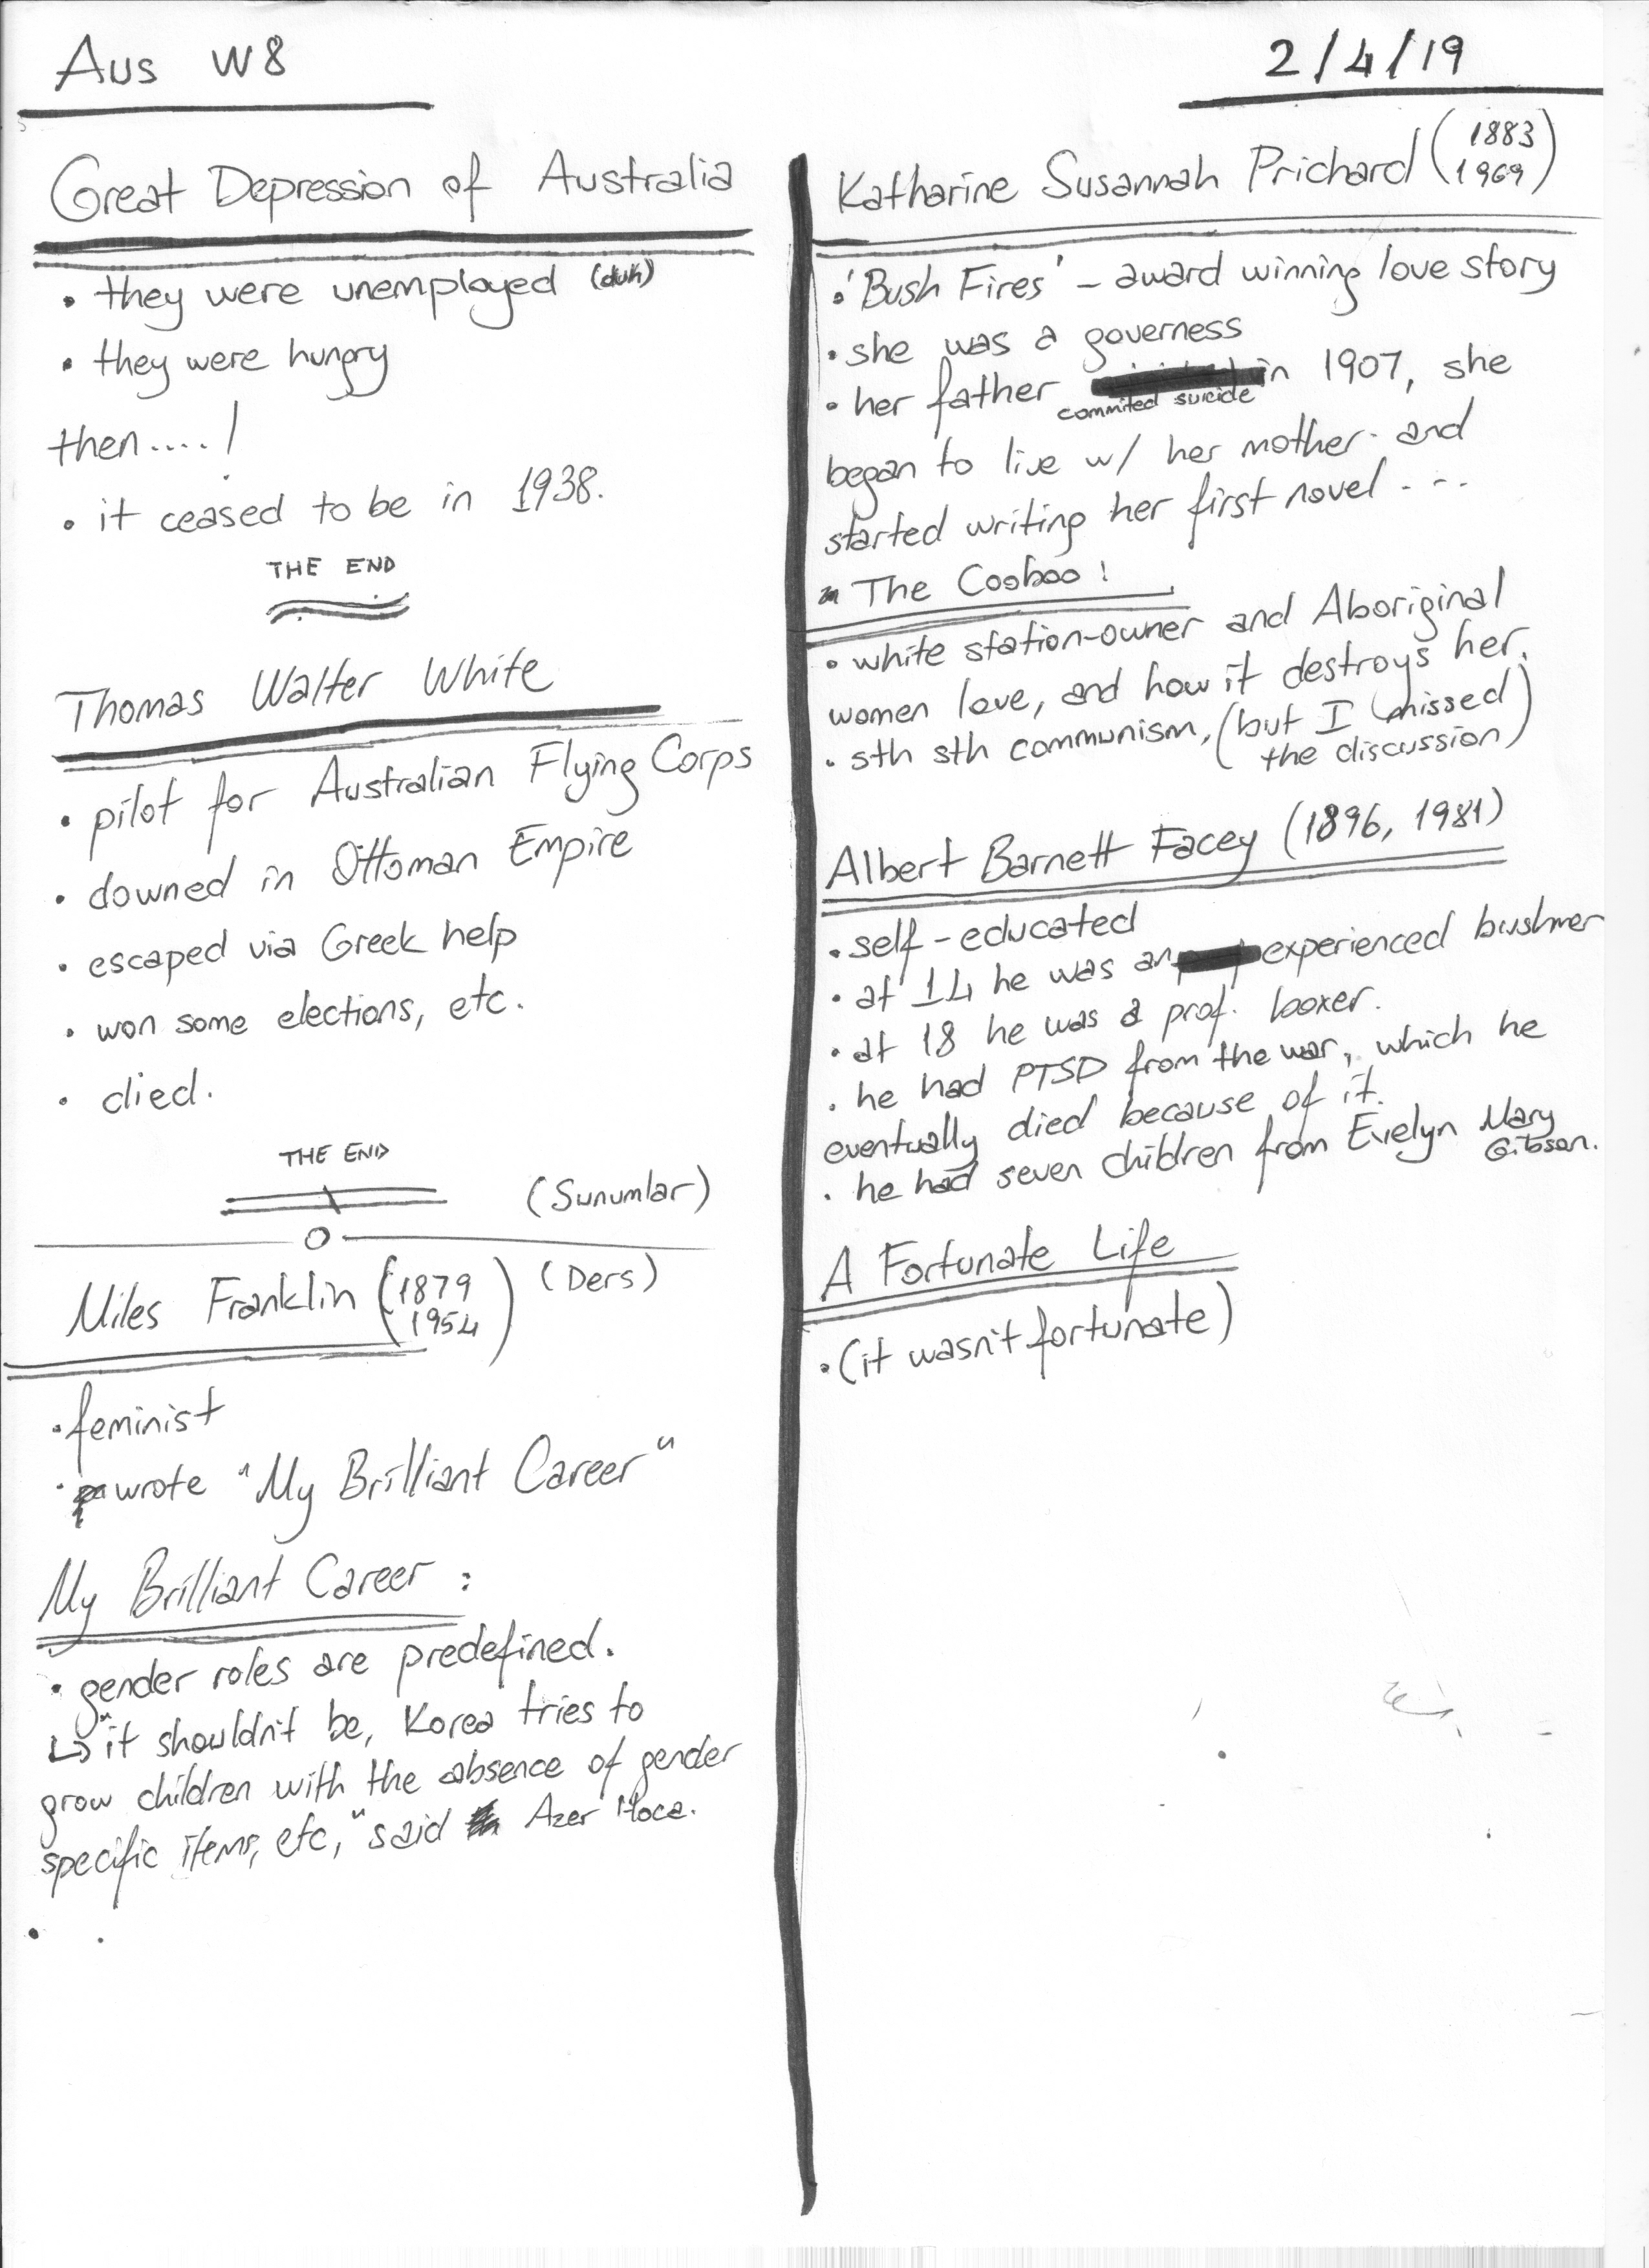 Aus W8
2/4/19
Great Depression of Australia
• they were unemployed (duh)
• they were hungry
then....!
• it ceased to be in 1938.
THE END
Thomas Walter White
• pilot for Australian Flying Corps
• downed in Ottoman Empire
• escaped via Greek help
• won some elections, etc.
• died.
THE END
(Sunumlar)
Miles Franklin (1879
1954)
(Ders)
• feminist
• wrote "My Brilliant Career"
My Brilliant Career :
• gender roles are predefined.
↳ "it shouldn't be, Korea tries to
grow children with the absence of gender
specific items, etc," said Azer Hoca.
Katharine Susannah Prichard (1883
1969)
• 'Bush Fires' - award winning love story
• she was a governess
• her father in 1907, she
commited suicide
began to live w/ her mother and
started writing her first novel ...
The Cooboo!
• white station-owner and Aboriginal
women love, and how it destroys her.
• sth sth communism, (but I missed
the discussion)
Albert Barnett Facey (1896, 1981)
• self-educated
• at 14 he was an experienced bushmer
• at 18 he was a prof. boxer.
• he had PTSD from the war, which he
eventually died because of it.
• he had seven children from Evelyn Mary
Gibson.
A Fortunate Life
• (it wasn't fortunate)